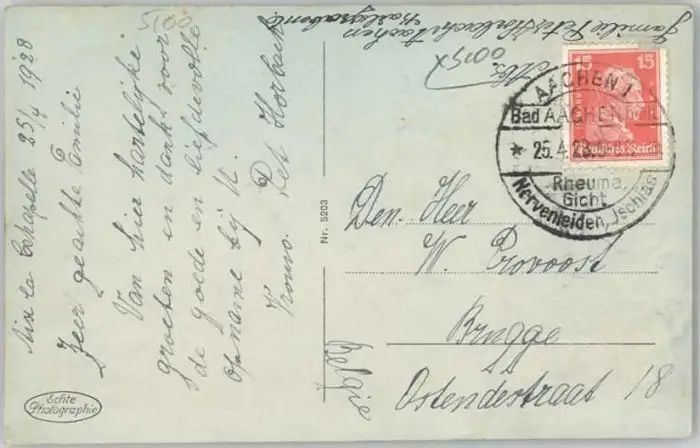 Aix la Chapelle 25/4 1928
Zeer geachte Familie
Van hier hartelijke
groeten en dank voor
de goede en liefdevolle
opname bij U.
Pet Horbach
5100
Familie Peter Horbach Aachen
0015x
Nr. 5203
Echte
Photographie
15 15
Deutsches Reich
AACHEN 1
Bad AACHEN heilt
25.4.28
Rheuma,
Gicht
Nervenleiden, Ischias
Den Heer
W. Provoost
Brugge
Ostendestraat 18
Belgie